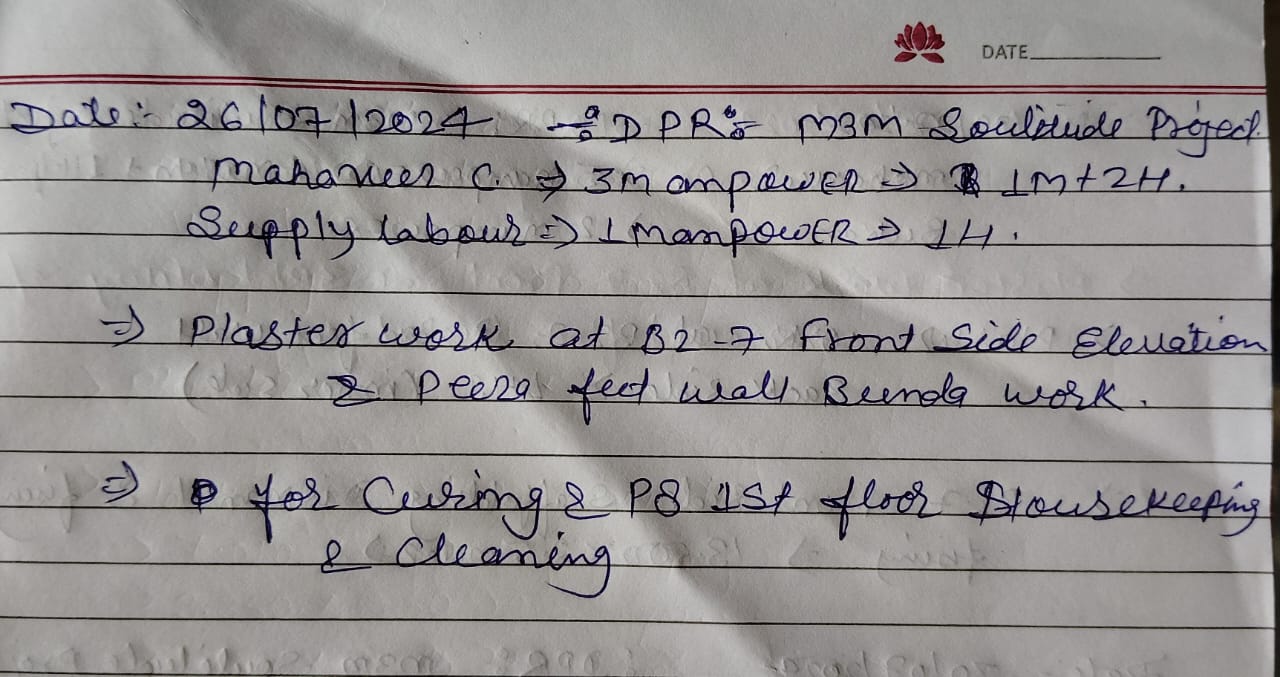 DATE
Date:- 26/07/2024 -: DPR:- M3M Soulitude Project.
Mahaveer C. => 3 manpowER => 1M+2H.
Supply labour => 1 manpowER => 1H.
=> Plaster work at B2-7 front Side Elevation
& Peera feet wall Bunda work.
=> for Curing & P8 1st floor Housekeeping
& Cleaning